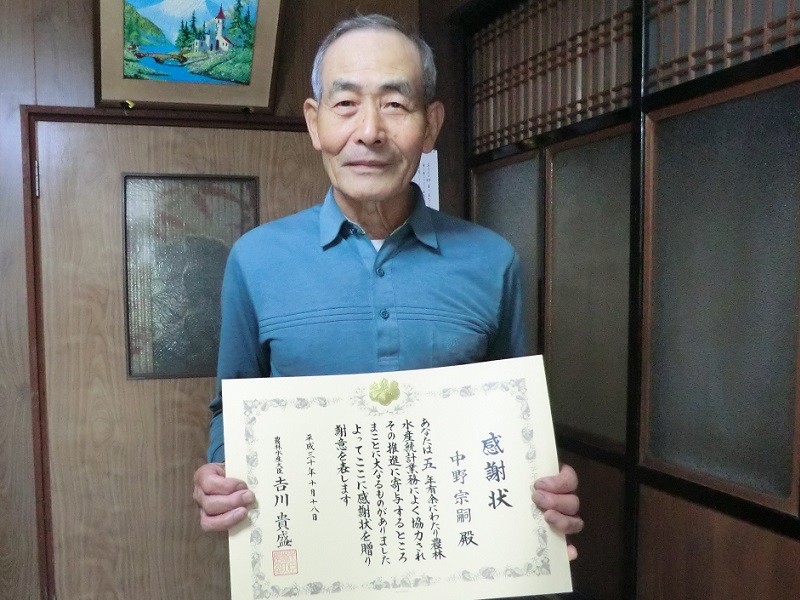 感謝状
中野宗嗣 殿
あなたは五年有余にわたり農林
水産統計業務によく協力され
その推進に寄与するところ
まことに大なるものがありました
よってここに感謝状を贈り
謝意を表します
平成三十年十月十八日
農林水産大臣 吉川貴盛